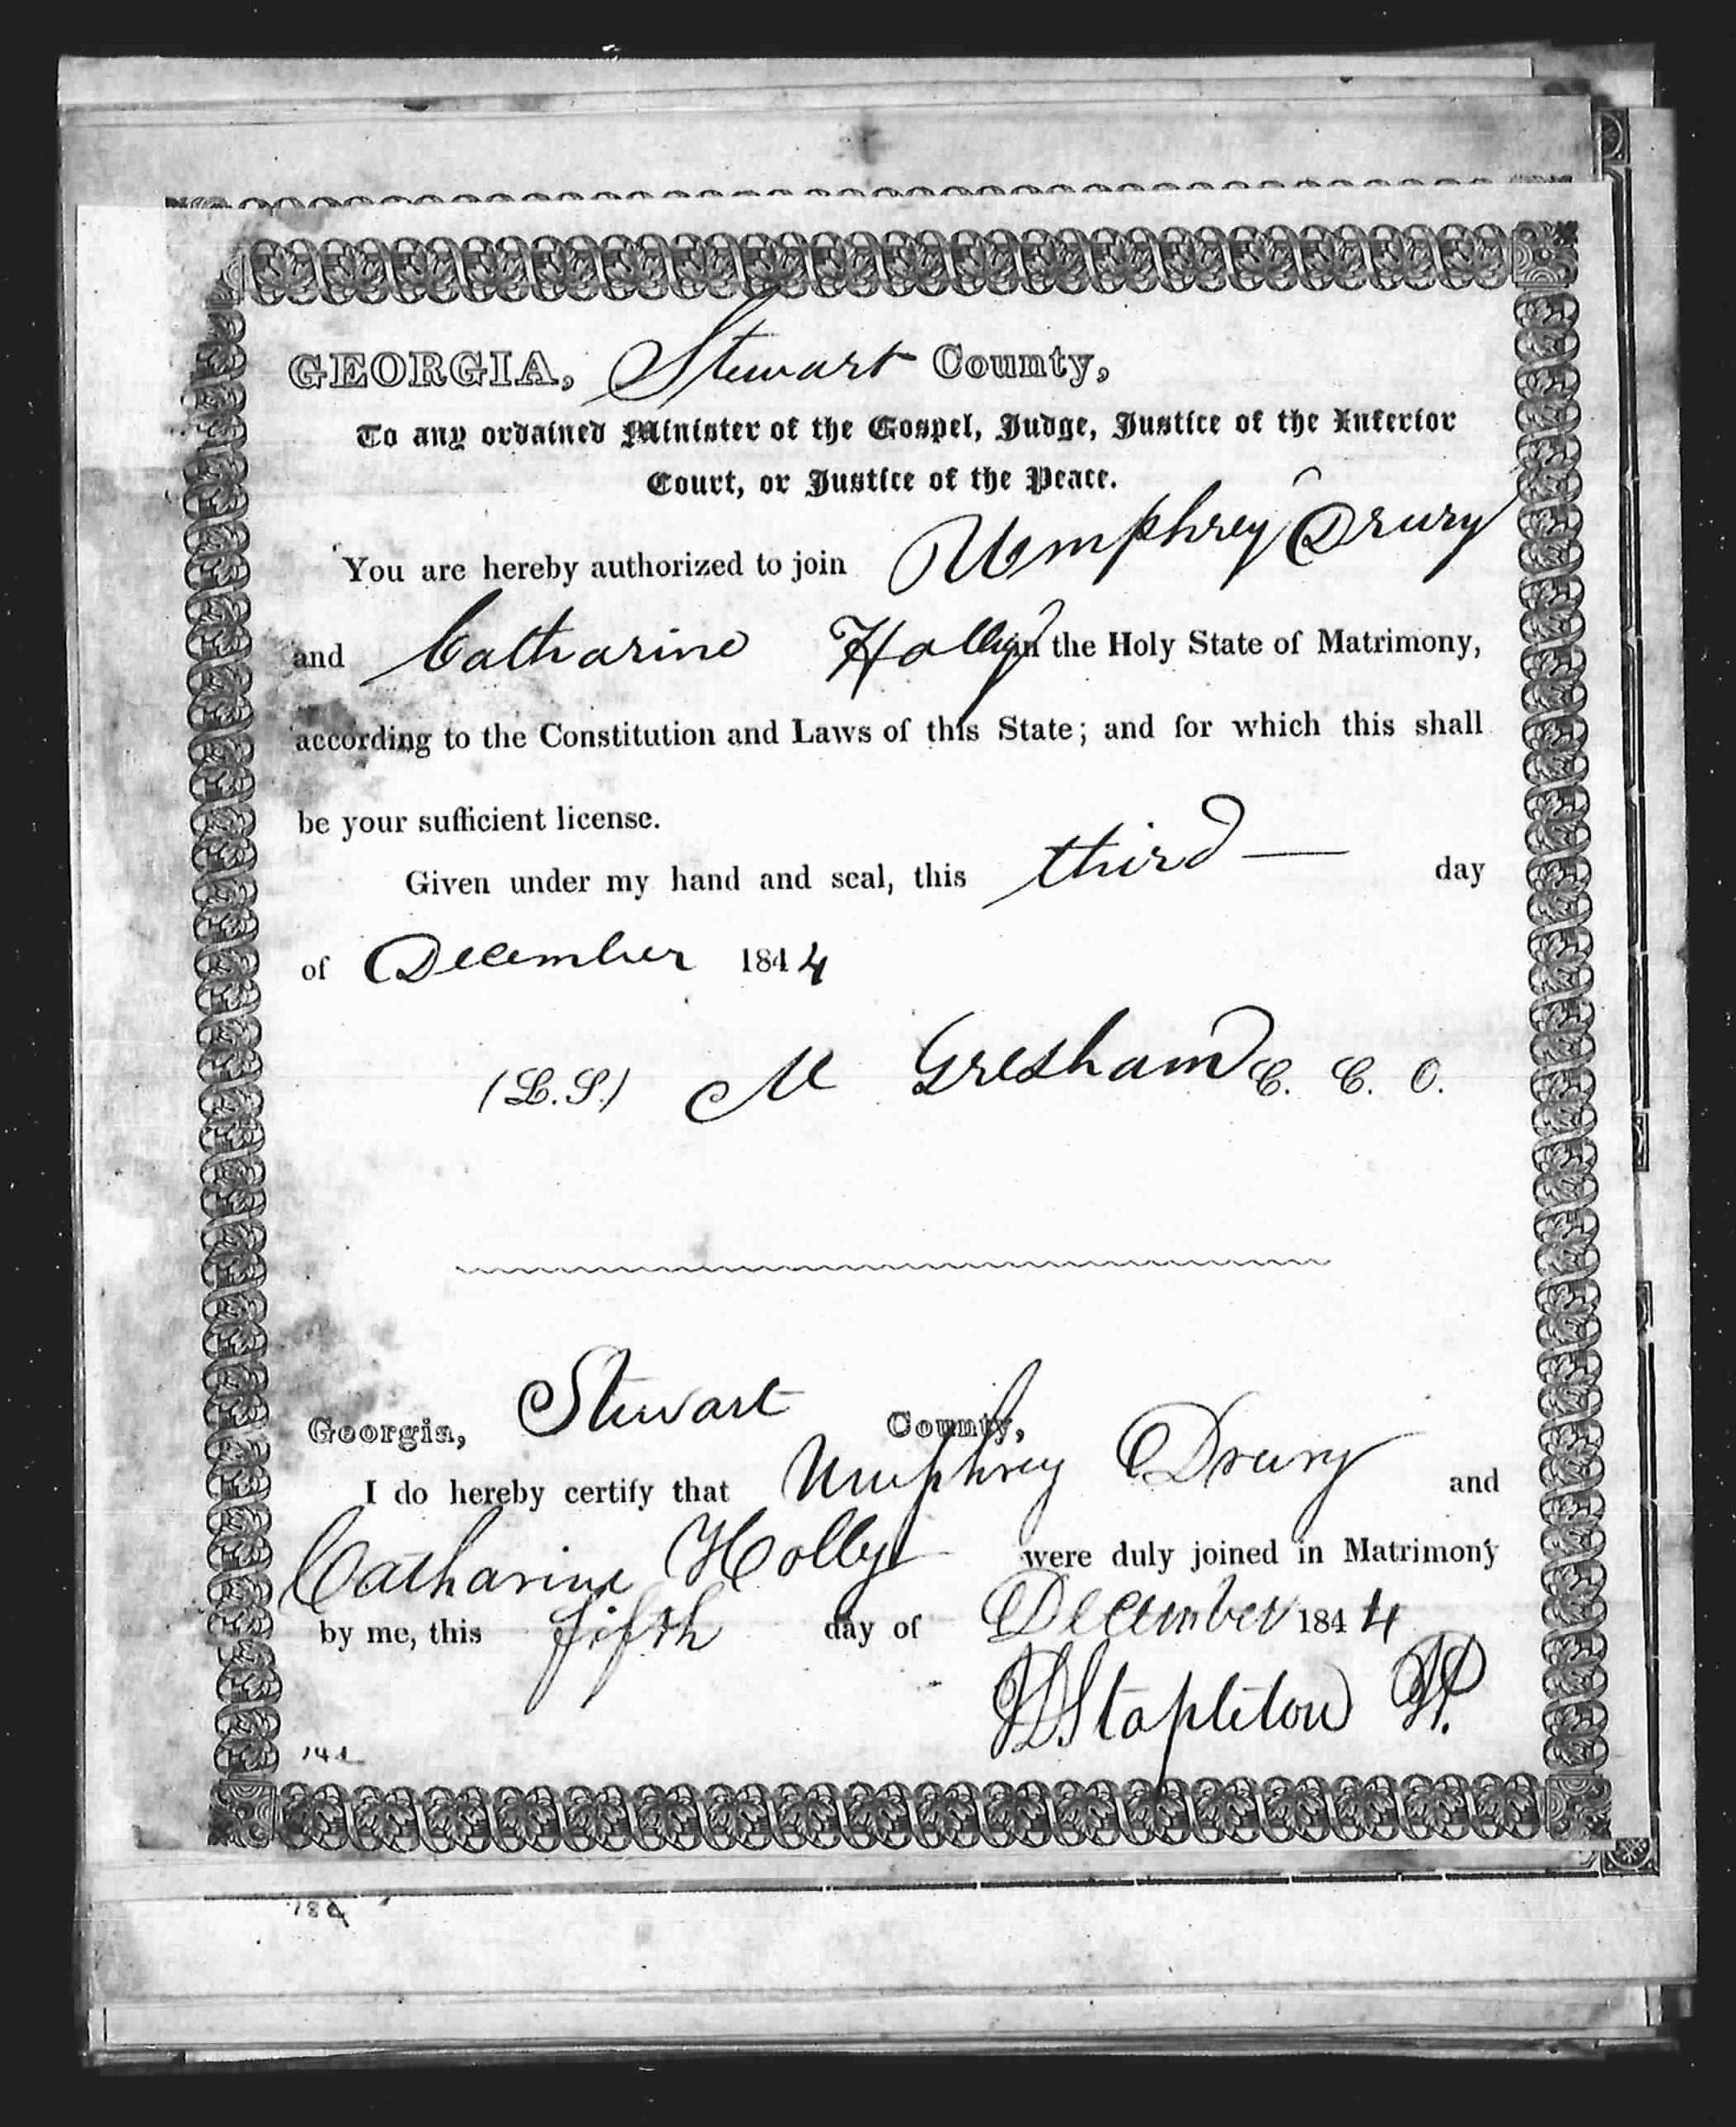 GEORGIA, Stewart County,
To any ordained Minister of the Gospel, Judge, Justice of the Inferior
Court, or Justice of the Peace.
You are hereby authorized to join Umphrey Drury
and Catharine Holly in the Holy State of Matrimony,
according to the Constitution and Laws of this State; and for which this shall
be your sufficient license.
Given under my hand and seal, this third — day
of December 1844
(L.S.) M Gresham C. C. O.
Georgia, Stewart County,
I do hereby certify that Umphrey Drury and
Catharine Holly were duly joined in Matrimony
by me, this fifth day of December 1844
Stapleton JP.